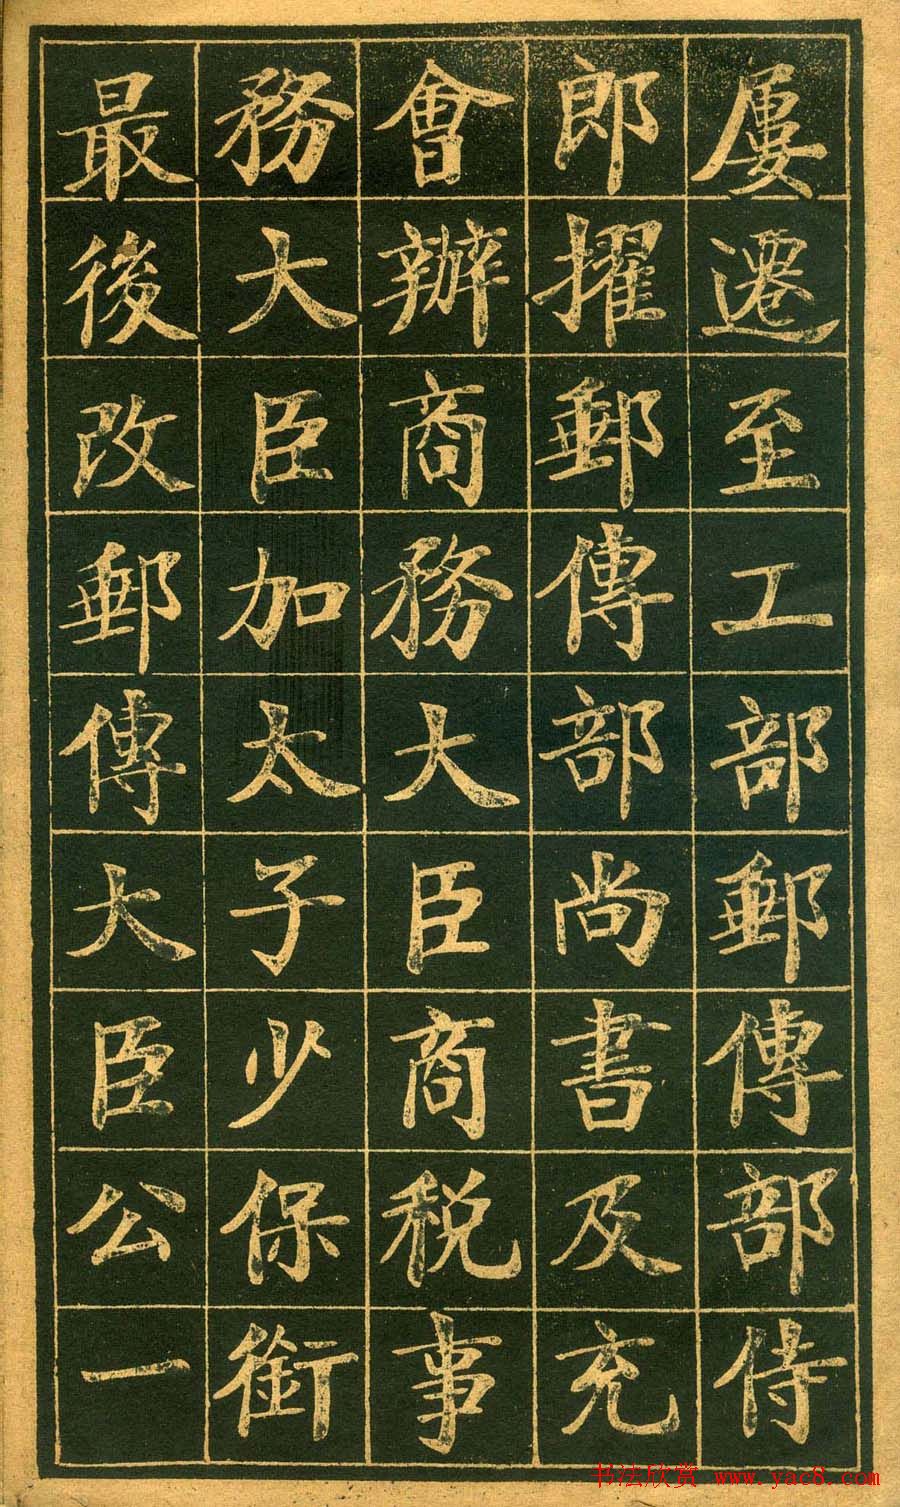 屢遷至工部郵傳部侍
郎擢郵傳部尚書及充
會辦商務大臣商稅事
務大臣加太子少保銜
最後改郵傳大臣公一
书法欣赏 www.yac8.com